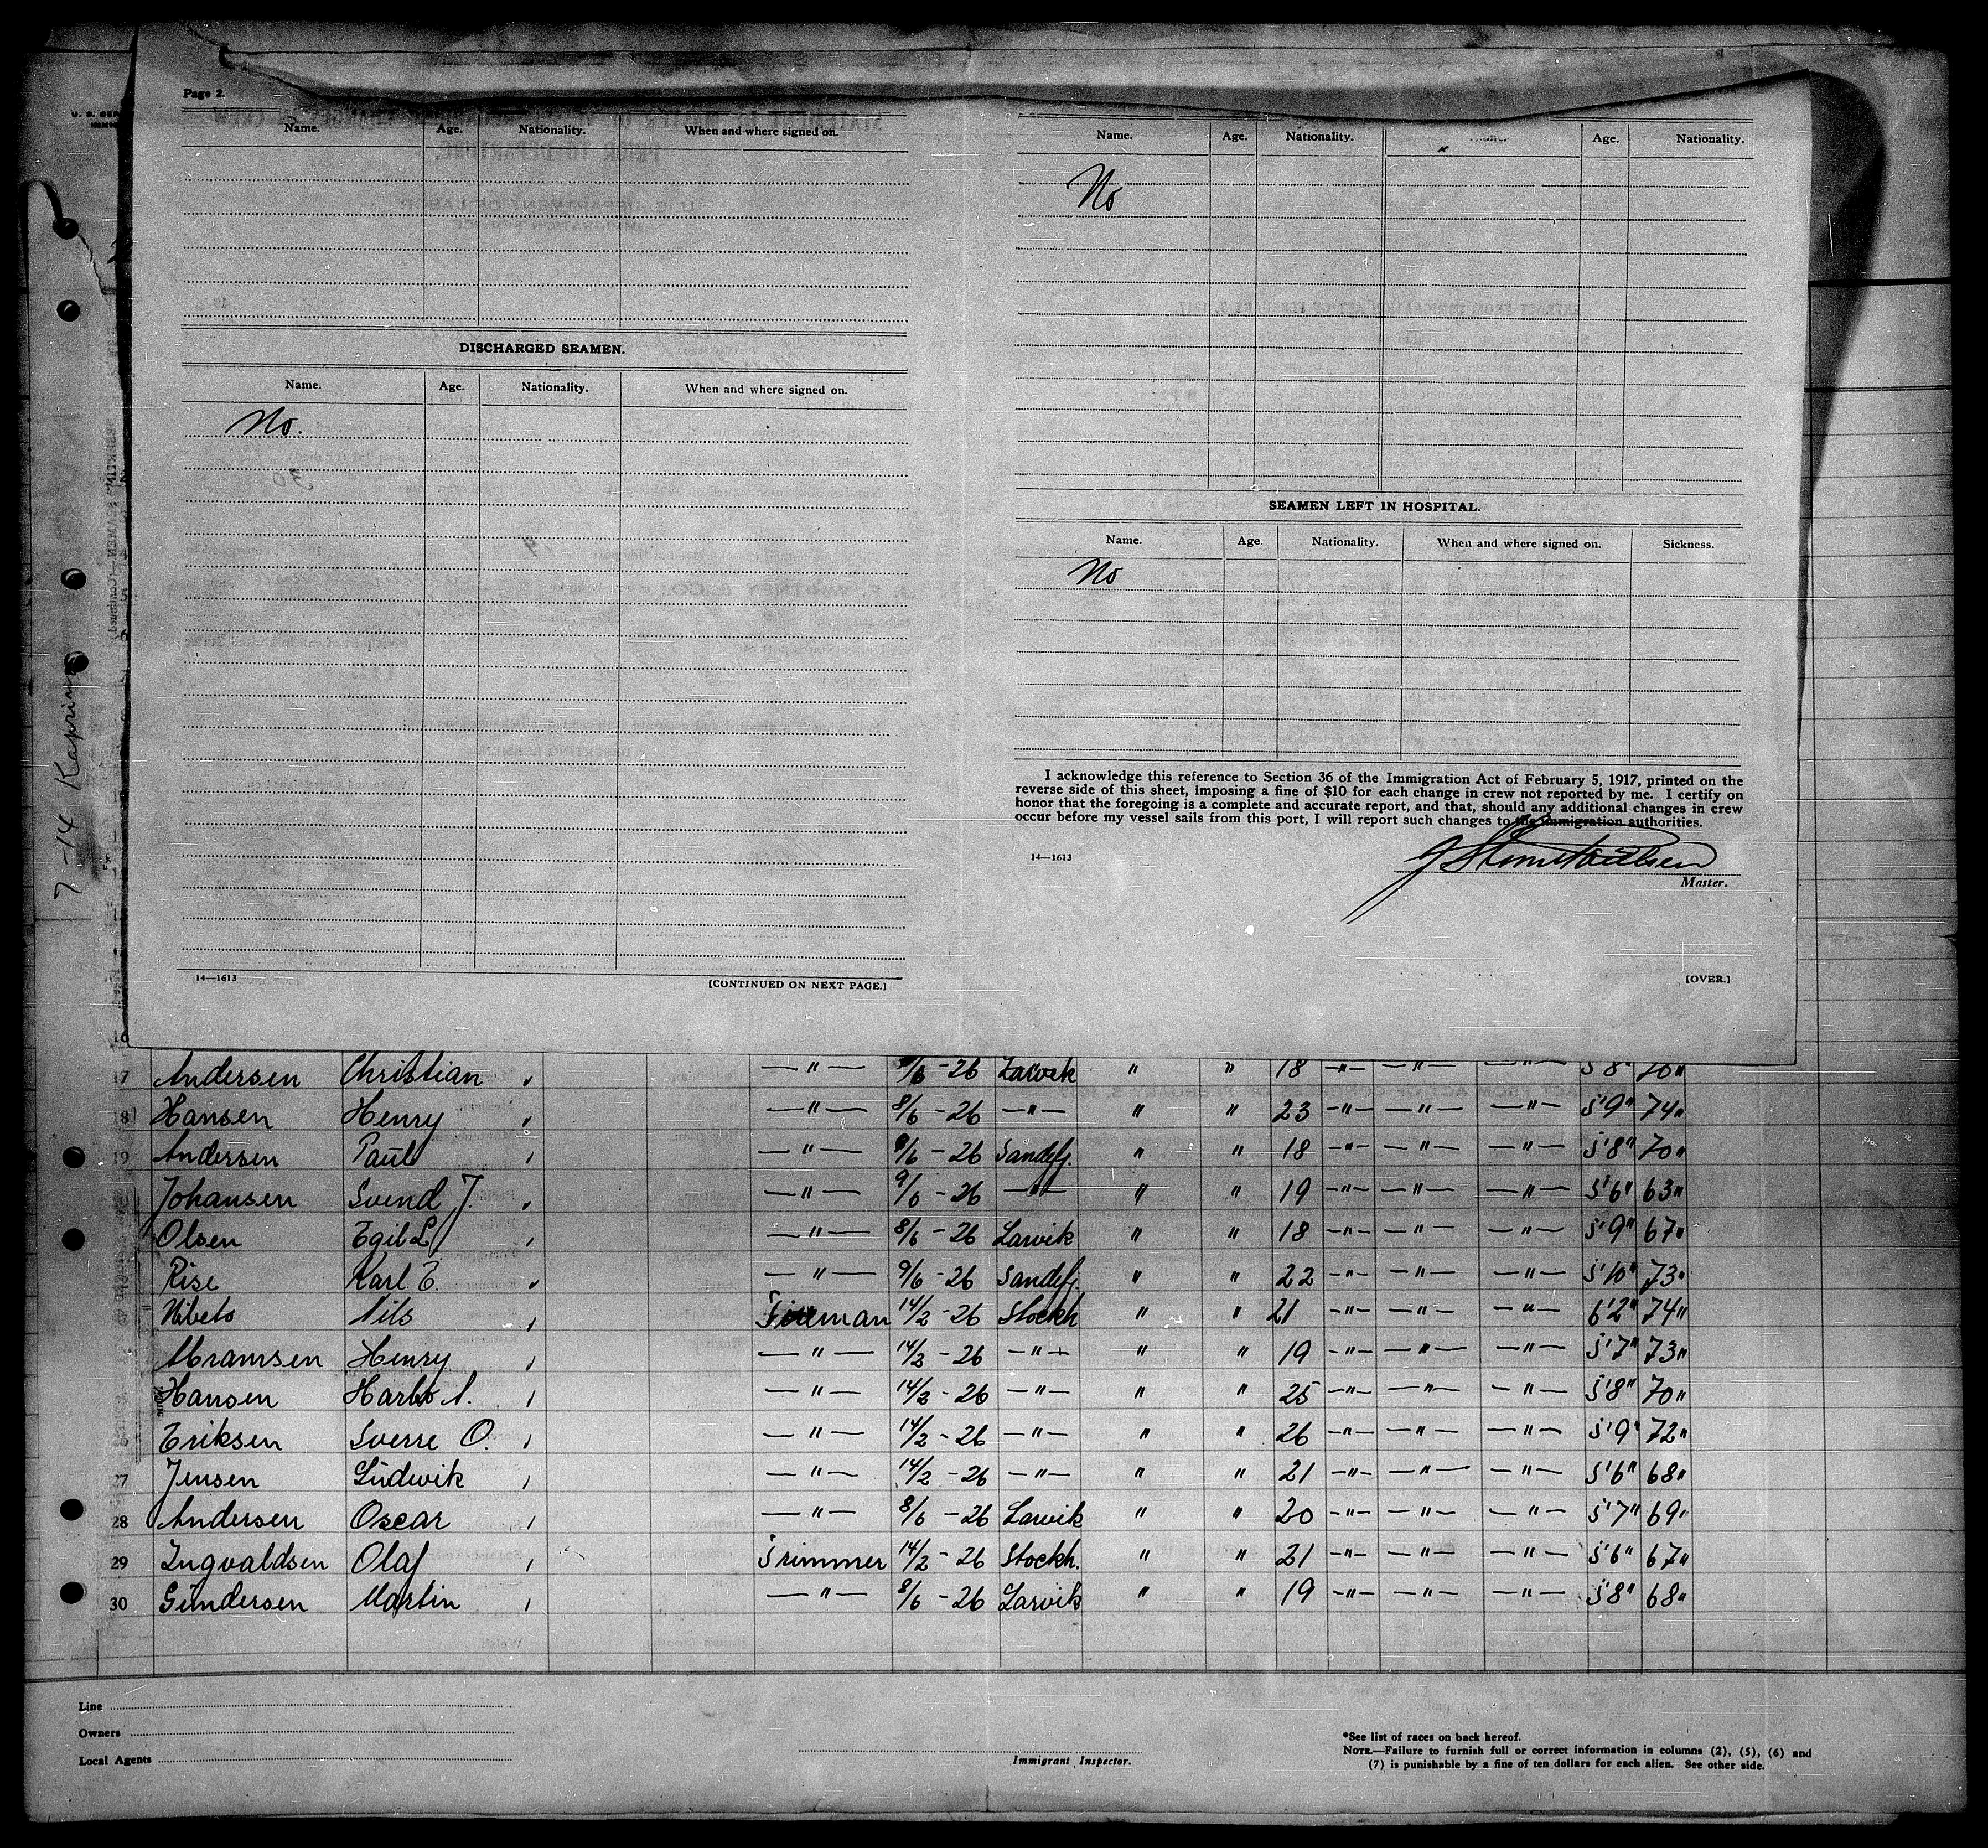 Page 2.
Name. Age. Nationality. When and where signed on.
DISCHARGED SEAMEN.
Name. Age. Nationality. When and where signed on.
No.
14—1613 [CONTINUED ON NEXT PAGE.]
Name. Age. Nationality. Age. Nationality.
No
SEAMEN LEFT IN HOSPITAL.
Name. Age. Nationality. When and where signed on. Sickness.
No
I acknowledge this reference to Section 36 of the Immigration Act of February 5, 1917, printed on the
reverse side of this sheet, imposing a fine of $10 for each change in crew not reported by me. I certify on
honor that the foregoing is a complete and accurate report, and that, should any additional changes in crew
occur before my vessel sails from this port, I will report such changes to the immigration authorities.
14—1613
Master.
[OVER.]
7-14
16
17 Andersen Christian — " — /6 - 26 Larvik " " 18 —"— —"— —"— 5'8" 70"
18 Hansen Henry — " — 8/6 - 26 —"— " " 23 —"— —"— —"— 5'9" 74"
19 Andersen Paul — " — 9/6 - 26 Sandefj. " " 18 —"— —"— —"— 5'8" 70"
Johansen Svend J. — " — 9/6 - 26 —"— " " 19 —"— —"— —"— 5'6" 63"
Olsen Egil L — " — 8/6 - 26 Larvik " " 18 —"— —"— —"— 5'9" 67"
Rise Karl E. — " — 9/6 - 26 Sandefj. " " 22 —"— —"— —"— 5'10" 73"
Nils Fireman 14/2 - 26 Stockh " " 21 —"— —"— —"— 6'2" 74"
Abramsen Henry — " — 14/2 - 26 —"— " " 19 —"— —"— —"— 5'7" 73"
Hansen A. — " — 14/2 - 26 —"— " " 25 —"— —"— —"— 5'8" 70"
Eriksen Sverre O. — " — 14/2 - 26 —"— " " 26 —"— —"— —"— 5'9" 72"
27 Jensen Ludwik — " — 14/2 - 26 —"— " " 21 —"— —"— —"— 5'6" 68"
28 Andersen Oscar — " — 8/6 - 26 Larvik " " 20 —"— —"— —"— 5'7" 69"
29 Ingvaldsen Olaf Trimmer 14/2 - 26 Stockh. " " 21 —"— —"— —"— 5'6" 67"
30 Gundersen Martin — " — 8/6 - 26 Larvik " " 19 —"— —"— —"— 5'8" 68"
Line
Owners
Local Agents
Immigrant Inspector.
*See list of races on back hereof.
NOTE.—Failure to furnish full or correct information in columns (2), (5), (6) and
(7) is punishable by a fine of ten dollars for each alien. See other side.